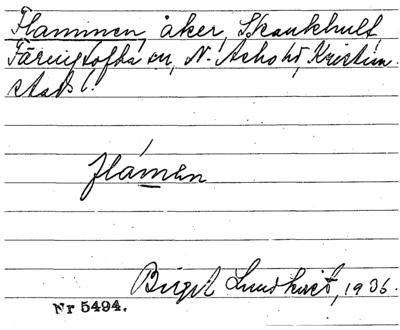 Flammen, åker, Skankhult,
Färingtofta sn, N. Åsbo hd, Kristian-
stads l.
flámən
Birgit Lundkvist, 1936.
Nr 5494.